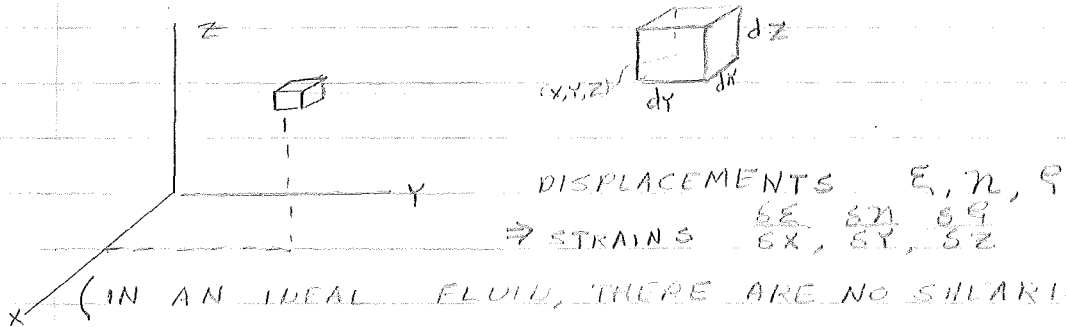 Z
dZ
(X,Y,Z)
dY
dX
Y
DISPLACEMENTS ξ, η, ρ
⇒ STRAINS δξ/δX, δη/δY, δρ/δZ
X
(IN AN IDEAL FLUID, THERE ARE NO